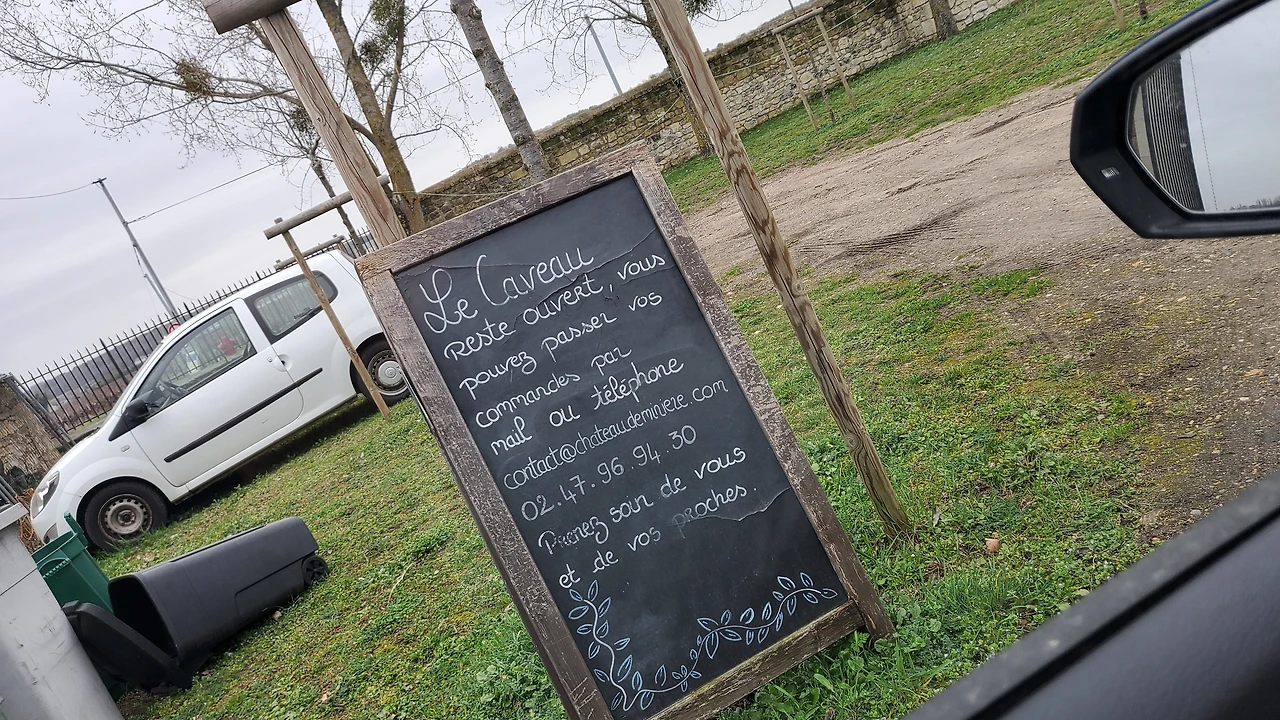 Le Caveau
Reste ouvert, vous
pouvez passer vos
commandes par
mail ou téléphone
contact@chateaudeminiere.com
02.47.96.94.30
Prenez soin de vous
et de vos proches.